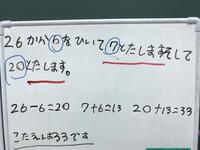 26から6をひいて7とたします。そして
20とたします。
26-6=20 7+6=13 20+13=33
こたえは33です